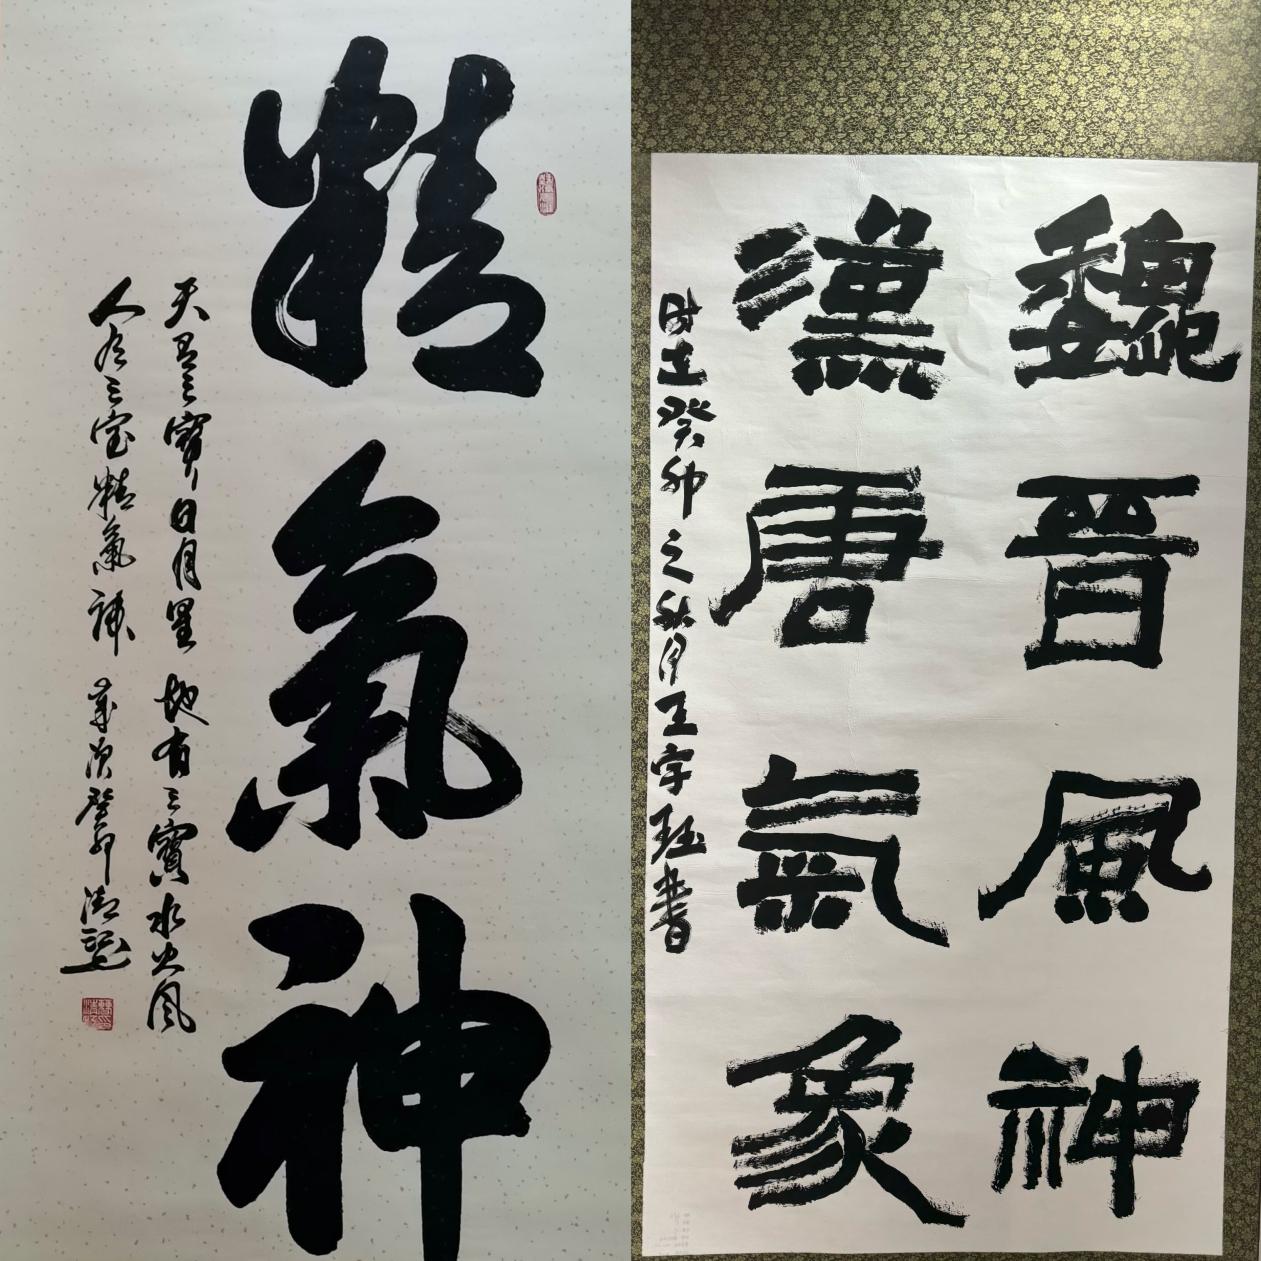 精氣神
天有三寶日月星地有三寶水火風
人有三寶精氣神歲次癸卯清
魏晉風神
漢唐氣象
時在癸卯之秋月王字珏書